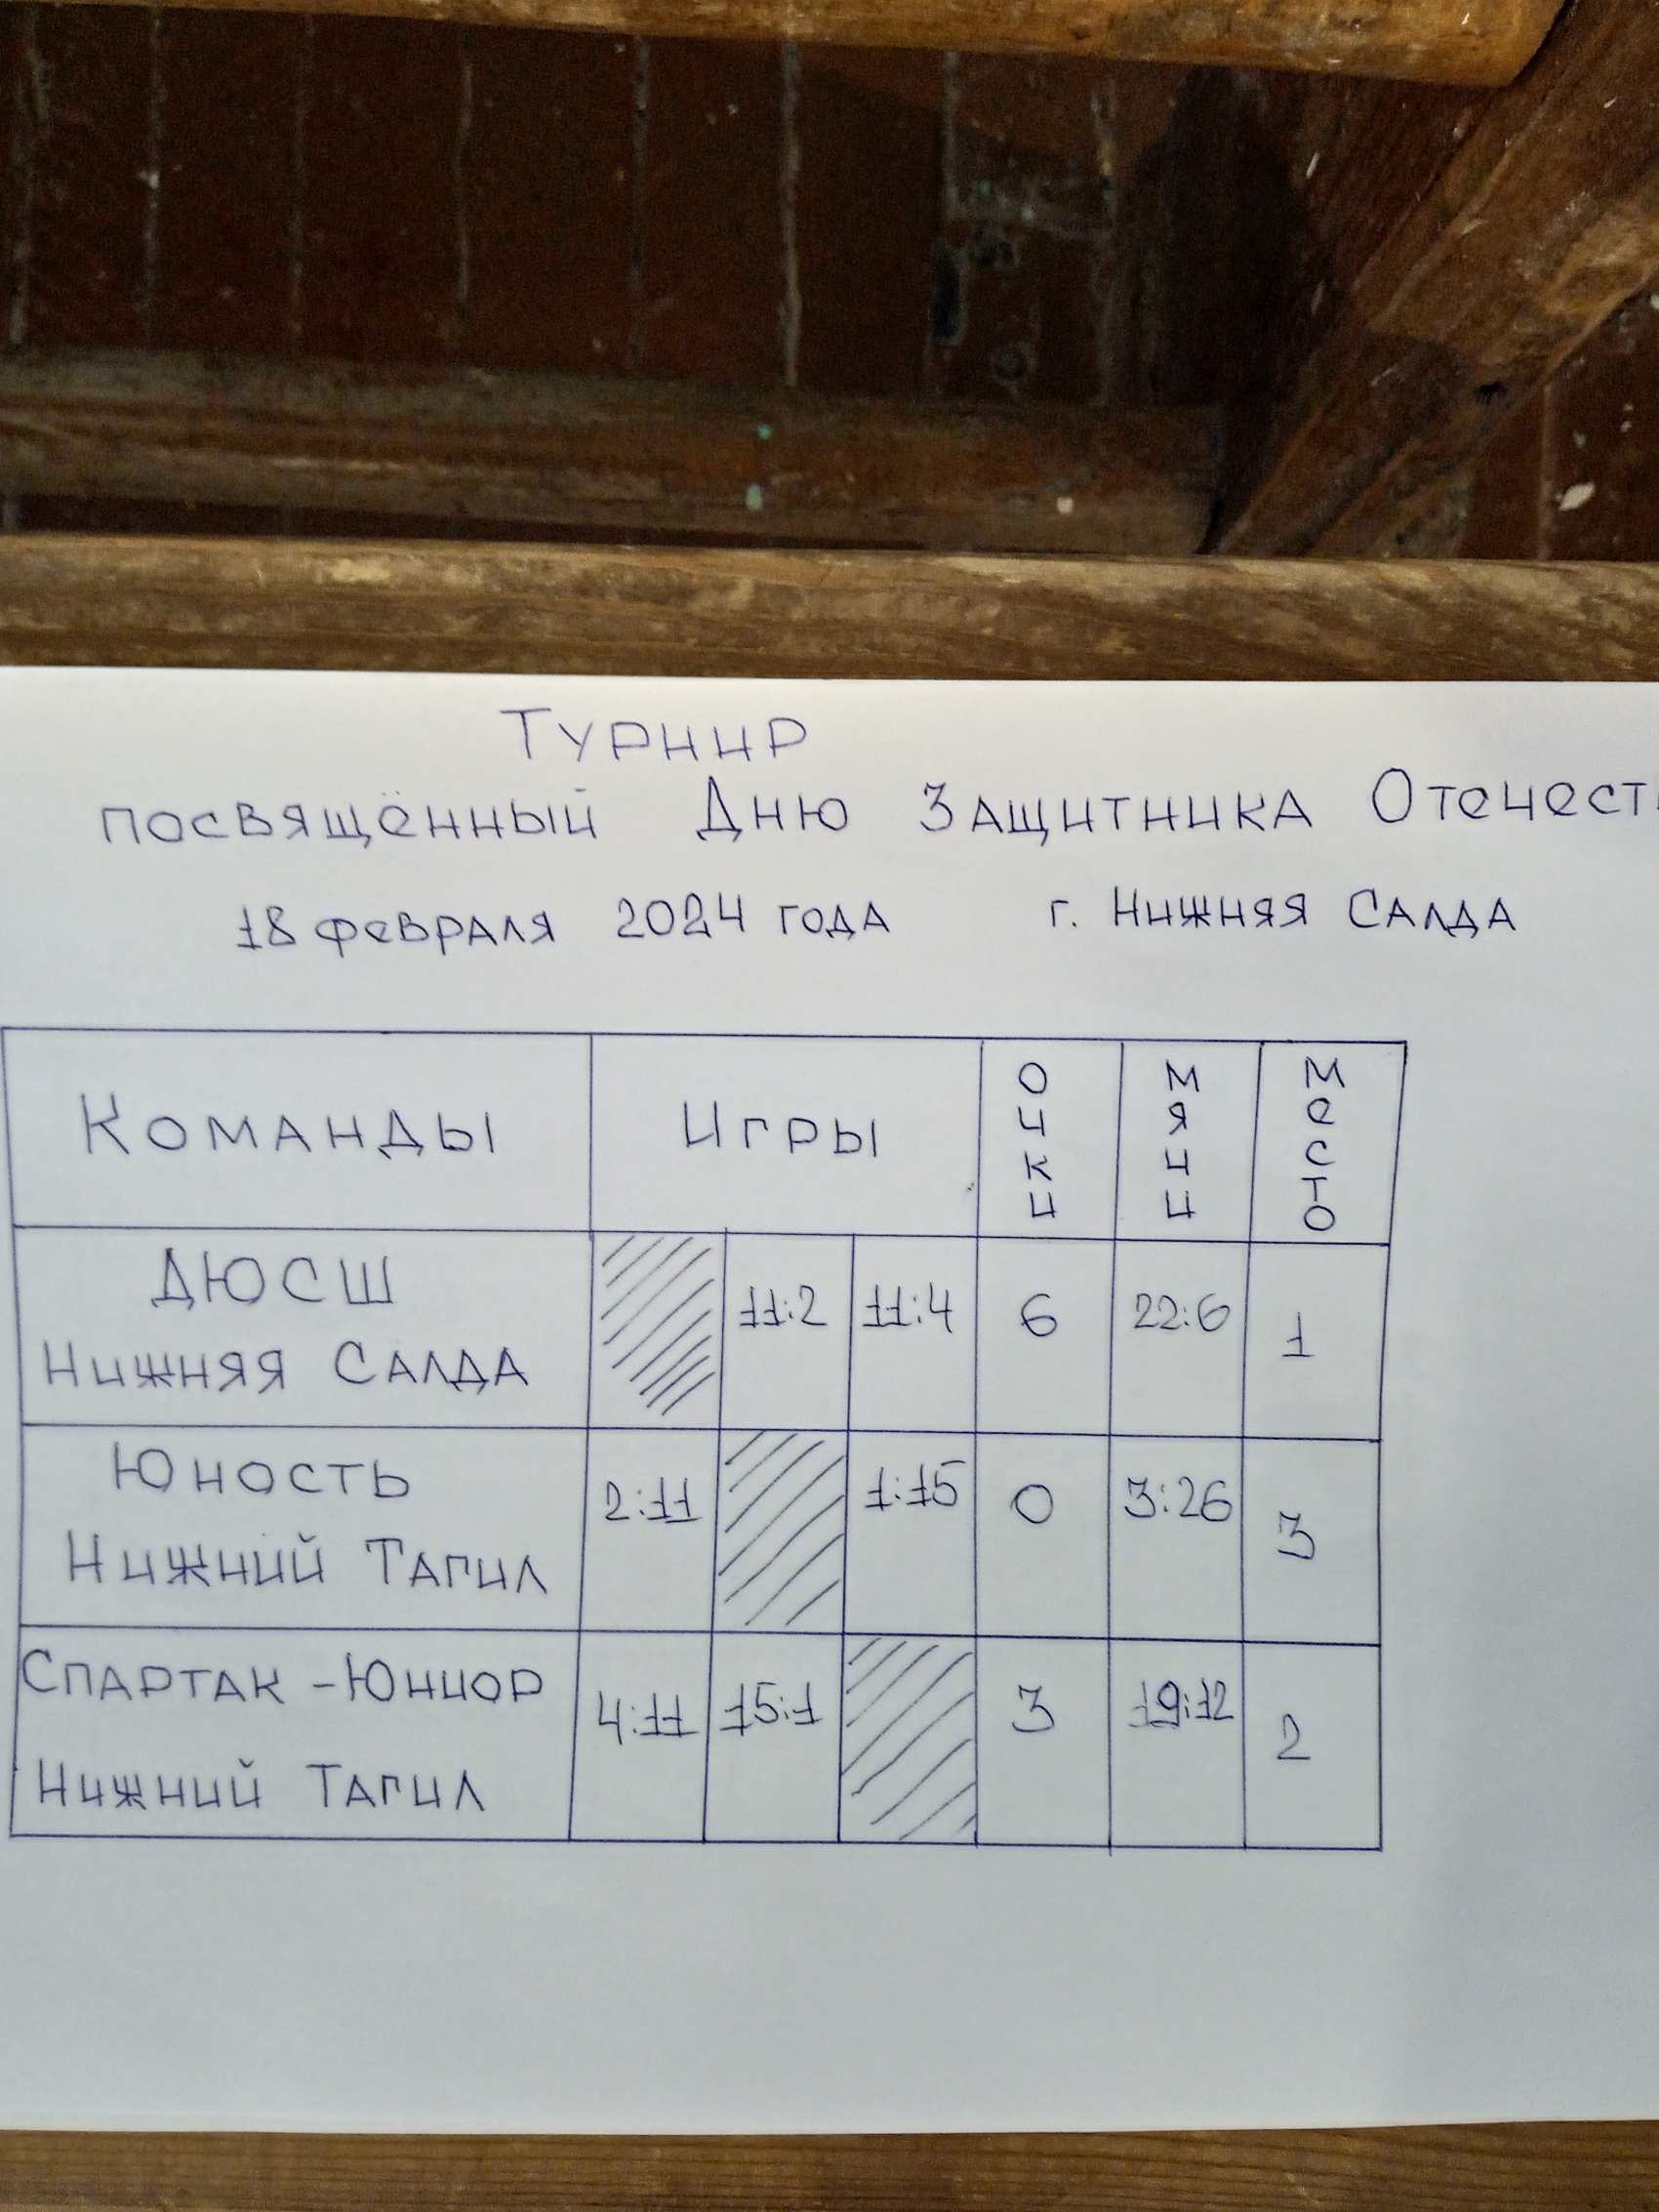 Турнир
посвящённый Дню Защитника Отечест
18 февраля 2024 года г. Нижняя Салда
Команды Игры Очки Мячи Место
ДЮСШ
Нижняя Салда 11:2 11:4 6 22:6 1
Юность
Нижний Тагил 2:11 1:15 0 3:26 3
Спартак-Юниор
Нижний Тагил 4:11 15:1 3 19:12 2